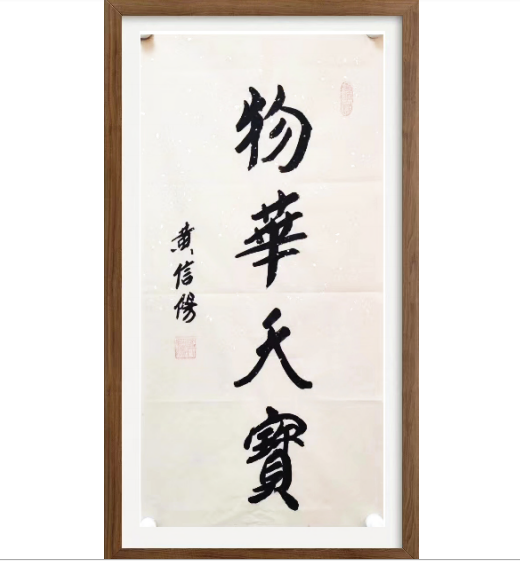 物華天寶
黄信陽